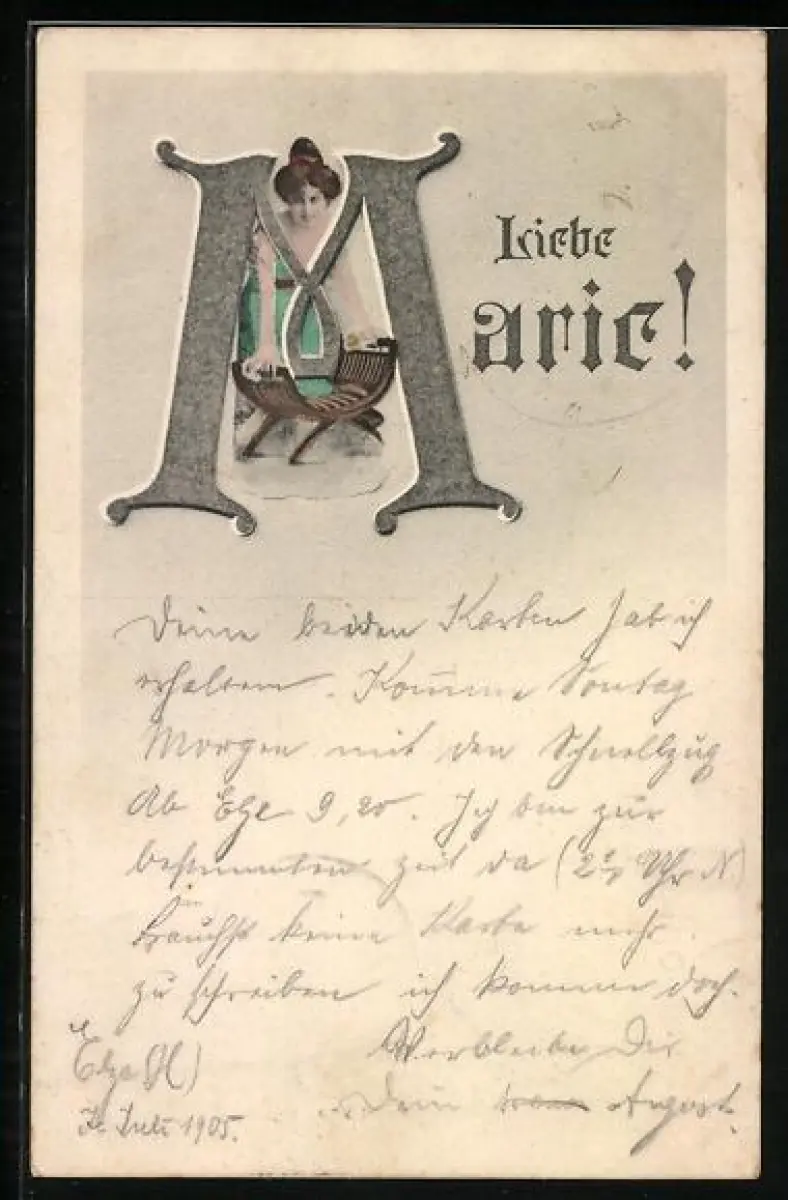 Liebe
Marie!
Deine beiden Karten hab ich
erhalten. Komme Sontag
Morgen mit den Schnellzug
Ab Elze 9,20. Ich bin zur
bestimmten zeit da (2 Uhr N)
brauchst keine Karte mehr
zu schreiben ich komme doch.
Verbleibe Dir
Dein August.
Elze
Juli 1905.